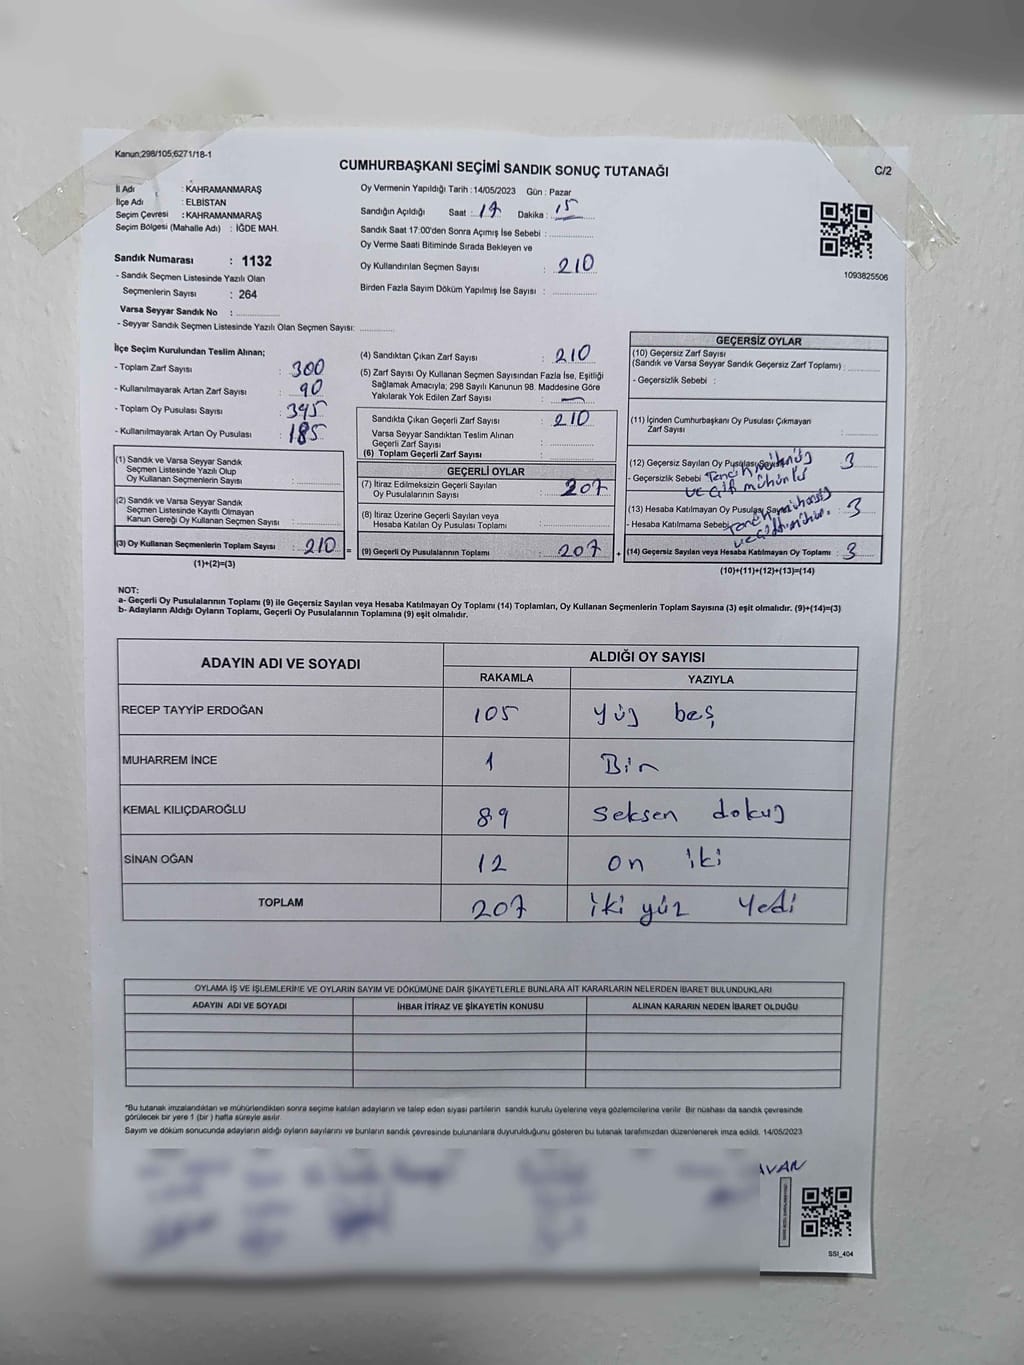 Kanun;298/105;6271/18-1
CUMHURBAŞKANI SEÇİMİ SANDIK SONUÇ TUTANAĞI
C/2
İl Adı : KAHRAMANMARAŞ
İlçe Adı : ELBİSTAN
Seçim Çevresi : KAHRAMANMARAŞ
Seçim Bölgesi (Mahalle Adı) : İĞDE MAH.
Oy Vermenin Yapıldığı Tarih : 14/05/2023 Gün : Pazar
Sandığın Açıldığı Saat : 17 Dakika : 15
Sandık Saati 17:00'den Sonra Açımış İse Sebebi :
Oy Verme Saati Bitiminde Sırada Bekleyen ve
Oy Kullandırılan Seçmen Sayısı : 210
Birden Fazla Sayım Döküm Yapılmış İse Sayısı :
1093825506
Sandık Numarası : 1132
- Sandık Seçmen Listesinde Yazılı Olan
Seçmenlerin Sayısı : 264
Varsa Seyyar Sandık No :
- Seyyar Sandık Seçmen Listesinde Yazılı Olan Seçmen Sayısı:
İlçe Seçim Kurulundan Teslim Alınan;
- Toplam Zarf Sayısı : 300
- Kullanılmayarak Artan Zarf Sayısı : 90
- Toplam Oy Pusulası Sayısı : 395
- Kullanılmayarak Artan Oy Pusulası : 185
(1) Sandık ve Varsa Seyyar Sandık
Seçmen Listesinde Yazılı Olup
Oy Kullanan Seçmenlerin Sayısı :
(2) Sandık ve Varsa Seyyar Sandık
Seçmen Listesinde Kayıtlı Olmayan
Kanun Gereği Oy Kullanan Seçmen Sayısı :
(3) Oy Kullanan Seçmenlerin Toplam Sayısı : 210 =
(1)+(2)=(3)
(4) Sandıktan Çıkan Zarf Sayısı : 210
(5) Zarf Sayısı Oy Kullanan Seçmen Sayısından Fazla İse, Eşitliği
Sağlamak Amacıyla; 298 Sayılı Kanunun 98. Maddesine Göre
Yakılarak Yok Edilen Zarf Sayısı : —
Sandıkta Çıkan Geçerli Zarf Sayısı : 210
Varsa Seyyar Sandıktan Teslim Alınan
Geçerli Zarf Sayısı :
(6) Toplam Geçerli Zarf Sayısı :
GEÇERLİ OYLAR
(7) İtiraz Edilmeksizin Geçerli Sayılan
Oy Pusulalarının Sayısı : 207
(8) İtiraz Üzerine Geçerli Sayılan veya
Hesaba Katılan Oy Pusulası Toplamı :
(9) Geçerli Oy Pusulalarının Toplamı : 207 +
GEÇERSİZ OYLAR
(10) Geçersiz Zarf Sayısı
(Sandık ve Varsa Seyyar Sandık Geçersiz Zarf Toplamı) :
- Geçersizlik Sebebi :
(11) İçinden Cumhurbaşkanı Oy Pusulası Çıkmayan
Zarf Sayısı :
(12) Geçersiz Sayılan Oy Pusulası Sayısı 3
- Geçersizlik Sebebi
ve çift mühürler
(13) Hesaba Katılmayan Oy Pusulası Sayısı 3
- Hesaba Katılmama Sebebi
(14) Geçersiz Sayılan veya Hesaba Katılmayan Oy Toplamı : 3
(10)+(11)+(12)+(13)=(14)
NOT:
a- Geçerli Oy Pusulalarının Toplamı (9) ile Geçersiz Sayılan veya Hesaba Katılmayan Oy Toplamı (14) Toplamları, Oy Kullanan Seçmenlerin Toplam Sayısına (3) eşit olmalıdır. (9)+(14)=(3)
b- Adayların Aldığı Oyların Toplamı, Geçerli Oy Pusulalarının Toplamına (9) eşit olmalıdır.
ADAYIN ADI VE SOYADI
ALDIĞI OY SAYISI
RAKAMLA YAZIYLA
RECEP TAYYİP ERDOĞAN 105 yüz beş
MUHARREM İNCE 1 Bir
KEMAL KILIÇDAROĞLU 89 Seksen dokuz
SİNAN OĞAN 12 on iki
TOPLAM 207 iki yüz Yedi
OYLAMA İŞ VE İŞLEMLERİNE VE OYLARIN SAYIM VE DÖKÜMÜNE DAİR ŞİKAYETLERLE BUNLARA AİT KARARLARIN NELERDEN İBARET BULUNDUKLARI
ADAYIN ADI VE SOYADI İHBAR İTİRAZ VE ŞİKAYETİN KONUSU ALINAN KARARIN NEDEN İBARET OLDUĞU
*Bu tutanak imzalandıktan ve mühürlendikten sonra seçime katılan adayların ve talep eden siyasi partilerin sandık kurulu üyelerine veya gözlemcilerine verilir. Bir nüshası da sandık çevresinde
görülecek bir yere 1 (bir) hafta süreyle asılır.
Sayım ve döküm sonucunda adayların aldığı oyların sayılarını ve bunların sandık çevresinde bulunanlara duyurulduğunu gösteren bu tutanak tarafımızdan düzenlenerek imza edildi. 14/05/2023
AVAN
SSI_404